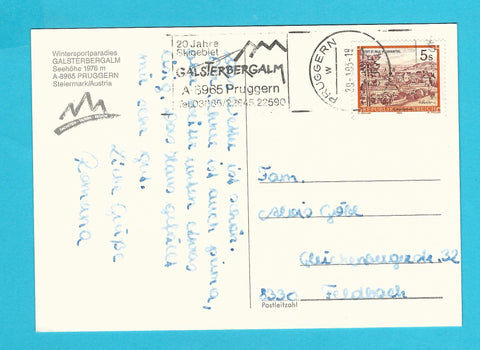 Wintersportparadies
GALSTERBERGALM
Seehöhe 1976 m
A-8965 PRUGGERN
Steiermark/Austria
20 Jahre
Skigebiet
GALSTERBERGALM
A 8965 Pruggern
Tel. 03685/22845, 22590
PRUGGERN
5 S
REPUBLIK ÖSTERREICH
ist schön.
ist auch prima,
unten etwas
Das Haus gefällt
mir sehr gut.
Liebe Grüße
Romana
Fam.
Alois
Gleichenbergerstr. 32
8330 Feldbach
Postleitzahl